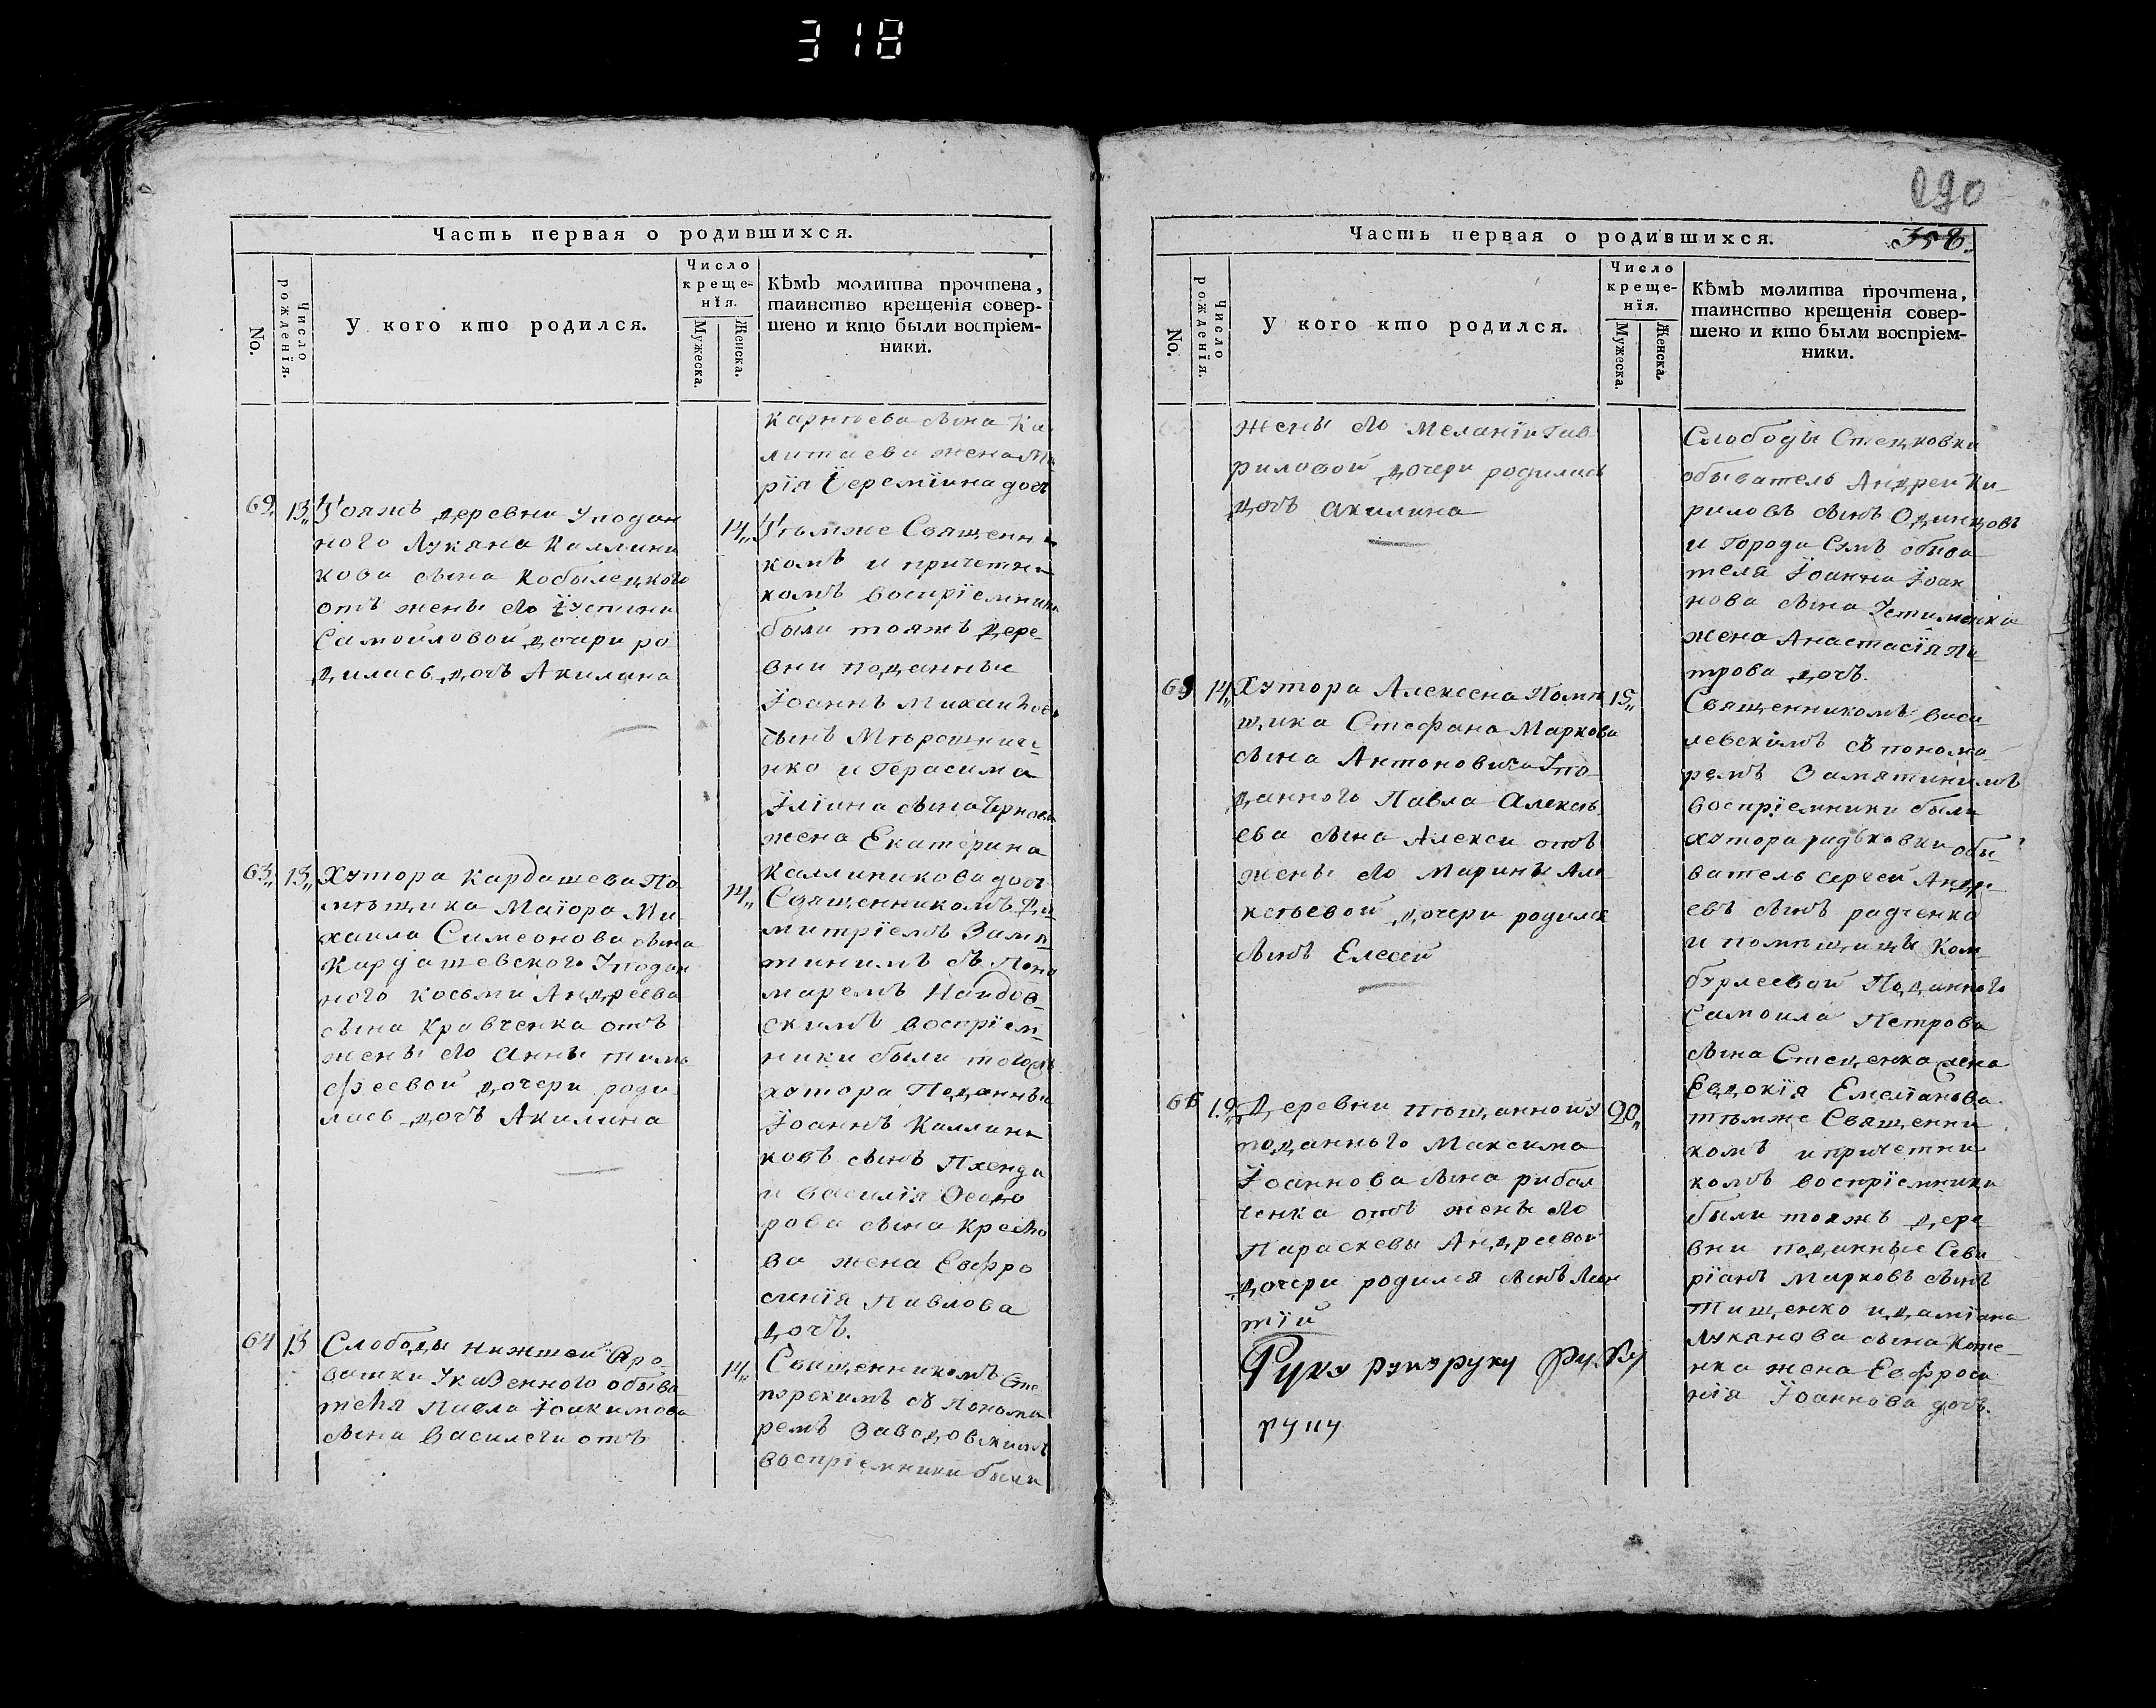 318
Часть первая о родившихся.
No.
Число рожденїя.
У кого кто родился.
Число креще-нїя.
Мужеска.
Женска.
Кѣмъ молитва прочтена,
таинство крещенїя совер-
шено и кто были воспрїем-
ники.
жена
рїя Іереміина доч
62 13 Тояжъ деревни У подан
ного Лукяна Каллини
кова сына Кобылецкого
отъ жены его Іустини
Самойловой дочери ро
дилась дочь Акилина
14 Тѣмже Священни
комъ и причетни
комъ воспрїемники
были тояжъ дере-
вни поданные
Іоаннъ Михаиловъ
сынъ Мѣрошниче
нко и Герасима
Іліина сына
жена Екатерина
Каллиникова доч
63 13 Хутора Кардашева По
мѣщика Маіора Ми-
хаила Симеонова сына
Кардашевского У подан
ного Косьми Андреева
сына Кравченка отъ
жены его Анны тимо
феевой дочери роди
лась дочъ Акилина
14 Священникомъ Ди
митріемъ Замя
тинимъ съ Поно
маремъ
скимъ воспрїем
ники были тогожъ
хутора Поданные
Іоаннъ Каллини
ковъ сынъ
и Василїя Ѳеодо
рова сына
ва жена Евфро
синїя Павлова
дочъ.
64 13 Слободы нижшей Сыро
ватки У казенного обыва
теля Павла Іоакимова
сына Василеги отъ
14 Священникомъ Сте
пурскимъ съ Понома
ремъ Заводовскимъ
воспрїемники были
290
Часть первая о родившихся.
358.
No.
Число рожденїя.
У кого кто родился.
Число креще-нїя.
Мужеска.
Женска.
Кѣмъ молитва прочтена,
таинство крещенїя совер-
шено и кто были воспрїем-
ники.
жены его Меланїи Гав
риловой дочери родилась
дочь Акилина
Слободы Стецковки
обыватель Андрей Ки-
риловъ сынъ Одинцовъ
и Города Сумъ обыва
теля Іоанна Іоан
нова сына Устименка
жена Анастасїя Пе
трова дочъ.
65 14 Хутора Алексена Помѣ
щика Стефана Маркова
сына Антоновича У по
данного Павла Алексѣ
ева сына Алекси отъ
жены его Марины Але
ксѣевой дочери родился
сынъ Елесей
15 Священникомъ Васи
левскимъ съ понома
ремъ Замятинимъ
воспрїемники были
хутора радьковки обы
ватель Сергей Андре
евъ сынъ радченко
и помѣщицы Ком
бурлеевой Поданного
Самоила Петрова
сына Стеценка жена
Евдокїя Емелїанова
66 19 Деревни пѣщанной У
поданного Максима
Іоаннова сына рибал
ченка отъ жены его
Параскевы Андреевой
дочери родился сынъ Леон
тїй
20 тѣмже Священни
комъ и причетни
комъ воспрїемники
были тояжъ дере
вни поданные Севе
рїанъ Марковъ сынъ
Тищенко и дамїана
Лукянова сына Коте
нка жена Евфроси
нїя Іоаннова дочъ.